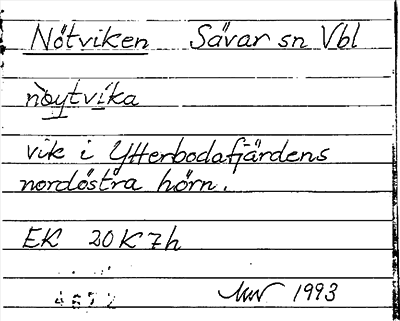 Nötviken Sävar sn Vbl
nöytvika
vik i Ytterbodafjärdens
nordöstra hörn.
EK 20K7h
4672 1993